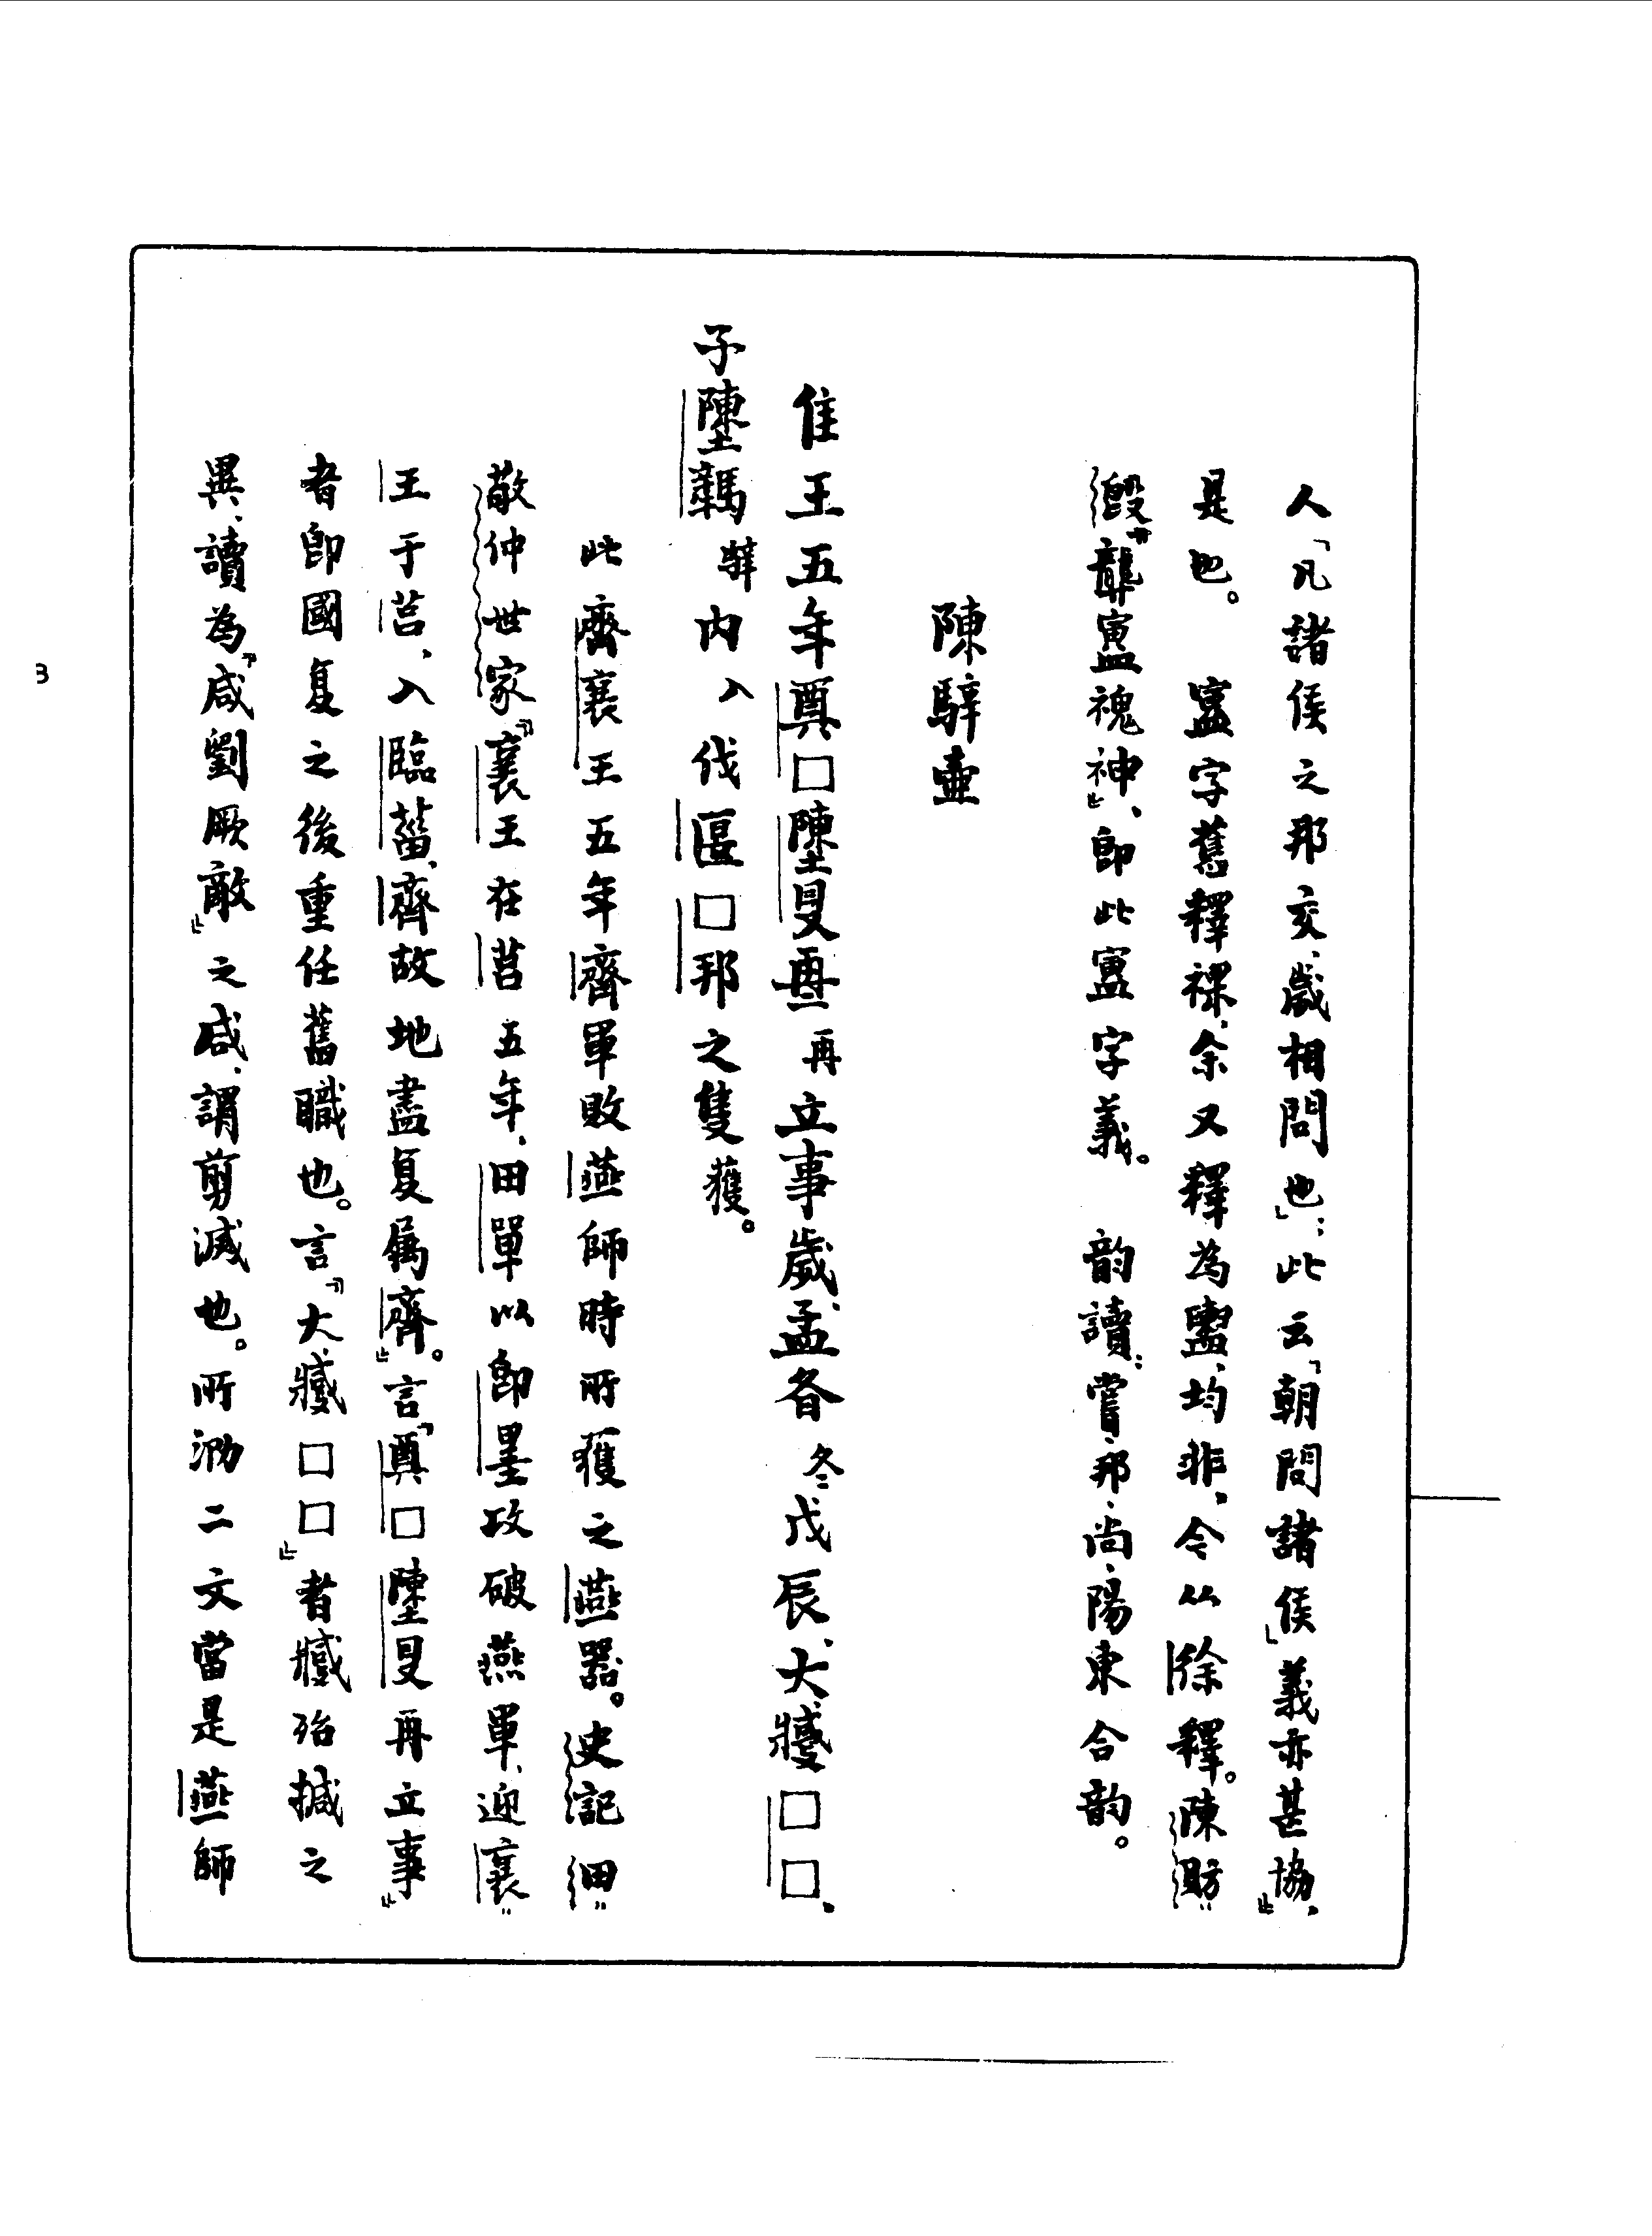 人「凡諸侯之邦交、歲相問也」；此云「朝問諸侯」義亦甚協』、
是也。　寍字舊釋祼、余又釋為盥、均非、今从徐釋。陳肪
𣪘『龏寍魂神』、卽此寍字義。　韵讀：嘗、邦、尚、陽東合韵。
陳騂壺
隹王五年奠□陳𡍮再立事歲、孟冬戊辰、大𢧵□□、
子陳騂內入伐匽□邦之隻獲。
此齊襄王五年齊軍敗燕師時所獲之燕器。史記田
敬仲世家『襄王在莒五年、田單以卽墨攻破燕軍、迎襄
王于莒、入臨菑、齊故地盡复屬齊』。言『奠□陳𡍮再立事』
者卽國复之後重任舊職也。言『大□□』者殆摵之
異、讀為『咸劉厥敵』之咸、謂剪滅也。所泐二文當是燕師